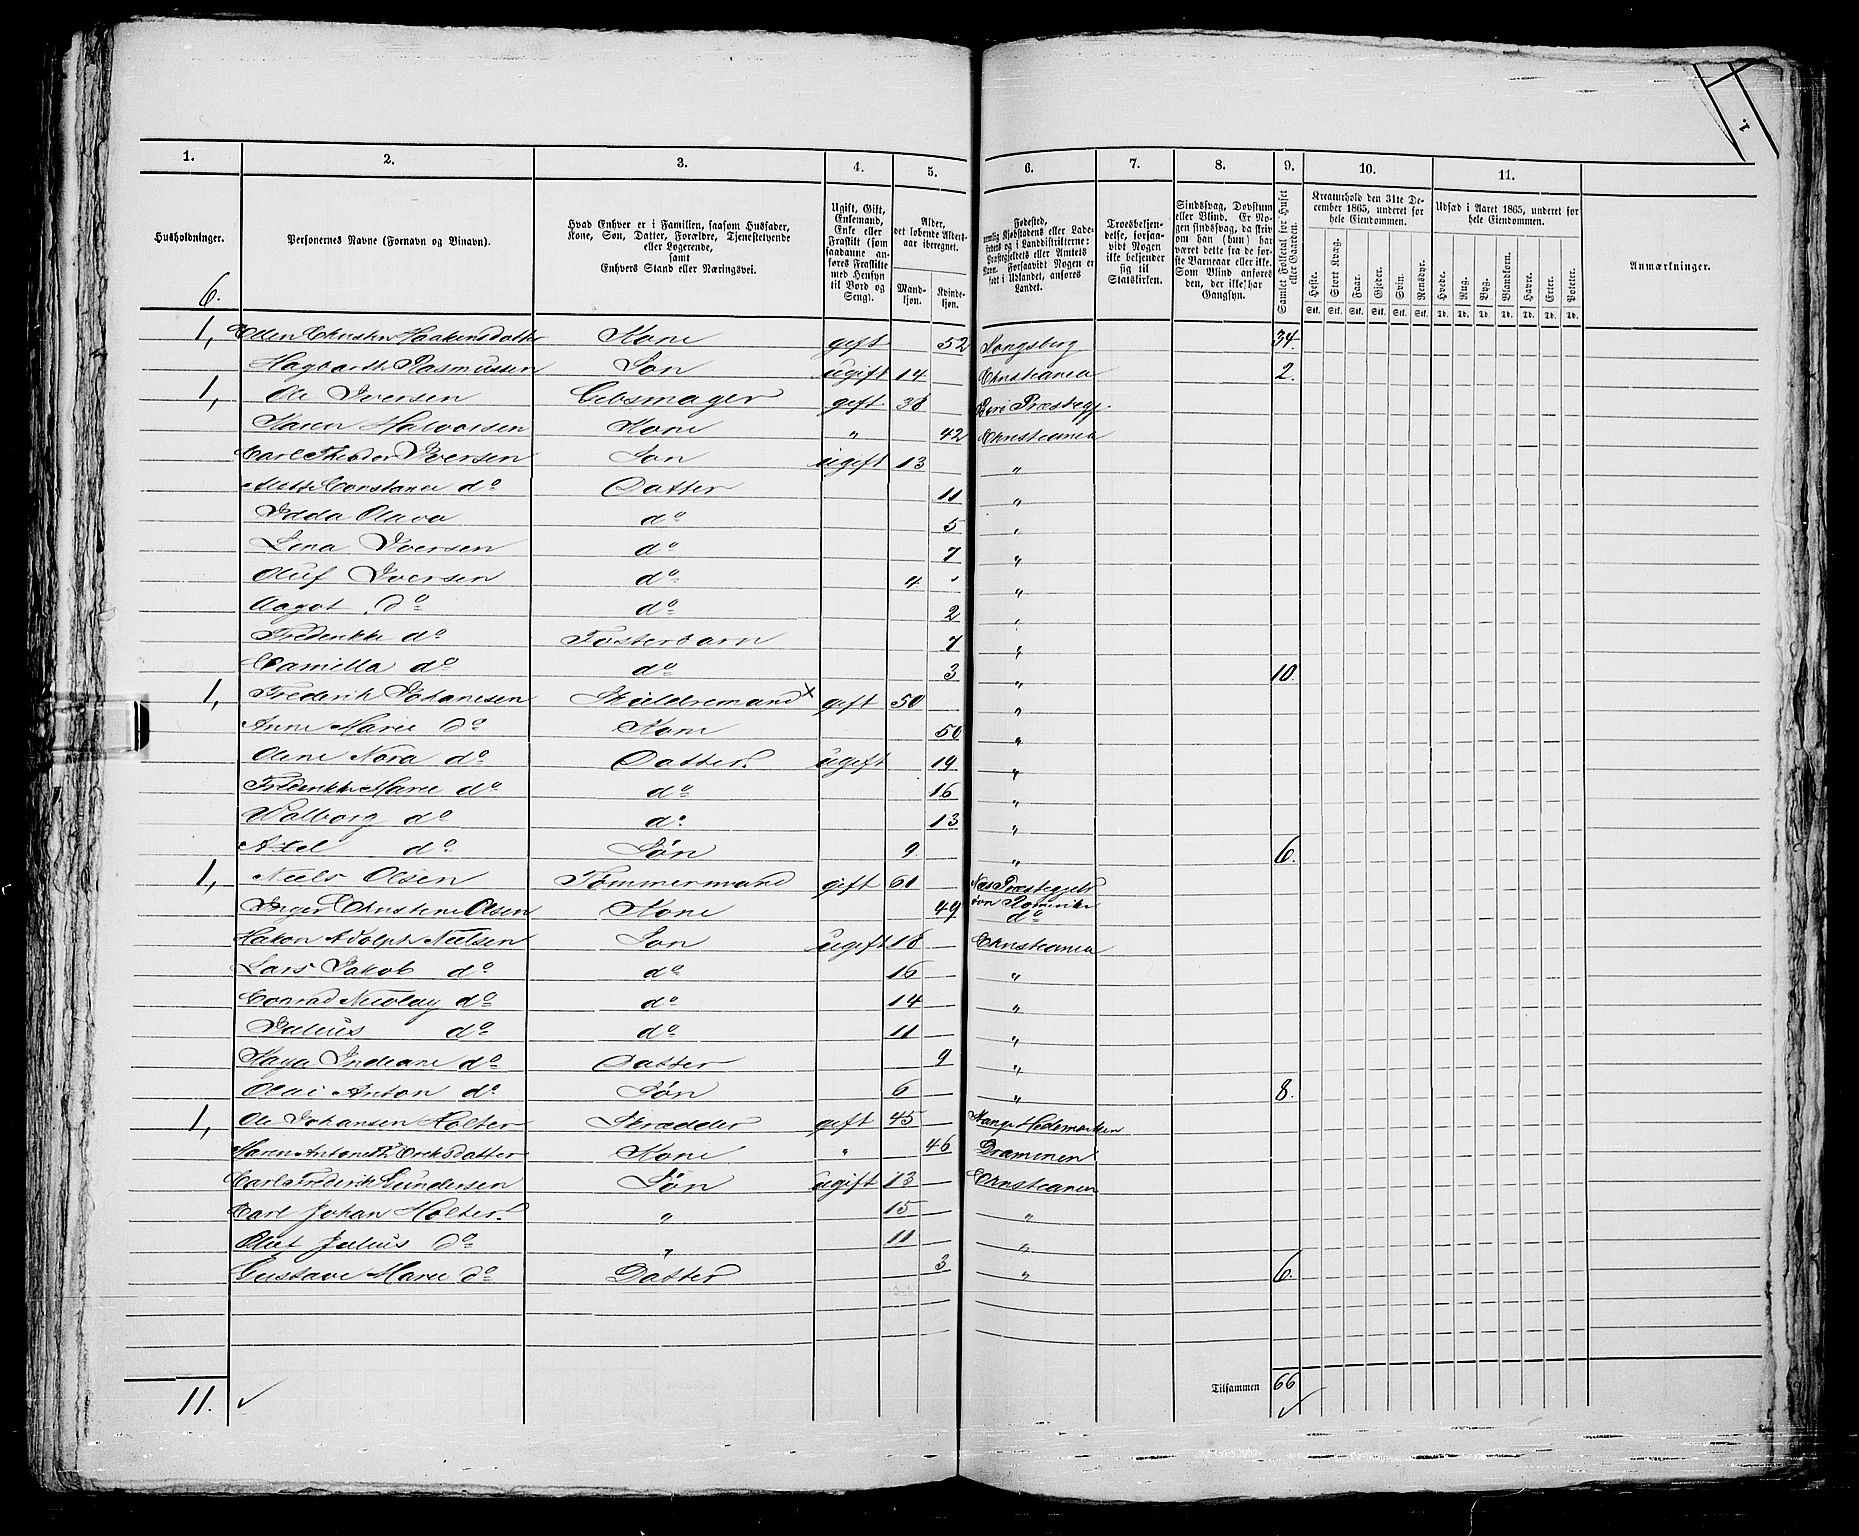 1. 2. 3. 4. 5. 6. 7. 8. 9. 10. 11.
Husholdninger.
Personernes Navne (Fornavn og Binavn).
Hvad Enhver er i Familien, saasom Husfader, Kone, Søn, Datter, Forældre, Tjenestetyende eller Logerende, samt Enhvers Stand eller Næringsvei.
Ugift, Gift, Enkemand, Enke eller Fraskilt (som saadanne anføres Fraskilte med Hensyn til Bord og Seng).
Alder, det løbende Alders-aar iberegnet.
Mand-kjøn. Kvinde-kjøn.
Fødested, nemlig Kjøbstadens eller Ladestedets og i Landdistrikterne: Præstegjeldets eller Amtets Navn. Forsaavidt Nogen er født i Udlandet, anføres Landet.
Troesbekjendelse, forsaavidt Nogen ikke bekjender sig til Statskirken.
Sindssvag, Døvstum eller Blind. Er Nogen sindssvag, da skriv om han (hun) har været dette fra de første Barneaar eller ikke. Som Blind anføres den, der ikke har Gangsyn.
Samlet Folketal for Huset eller Gaarden.
Kreaturhold den 31te December 1865, underet for hele Eiendommen.
Heste. Stort Kvæg. Faar. Gjeder. Svin. Rensdyr.
Stk. Stk. Stk. Stk. Stk. Stk.
Udsæd i Aaret 1865, underet for hele Eiendommen.
Hvede. Rug. Byg. Blandkorn. Havre. Erter. Poteter.
Td. Td. Td. Td. Td. Td. Td.
Anmærkninger.
6.
1, Ellen Christin Haakensdatter Kone gift 52 Kongsberg 34.
Hagbarth Rasmussen Søn ugift 14 Christiania 2.
1, Ole Iversen Gibsmager gift 38 Præstegj.
Karen Halvorsen Kone " 42 Christiania
Carl Theodor Iversen Søn ugift 13 "
Constance do Datter 11 "
Idda Olava do 5 "
Lena Iversen do 7 "
Oluf Iversen do 4 "
Aagot do do 2 "
Frederikke do Fosterbarn 7 "
Camilla do do 3 " 10.
1, Frederik Johanesen gift 50 "
Anne Marie do Kone 50 "
Oline Nora do Datter ugift 19 "
Frederikke Marie do do 16 "
Walborg do do 13 "
Axel do Søn 9 " 6.
1, Niels Olsen Tømmermand gift 61 Næs Præstegjeld
Romerike
Inger Christine Olsen Kone 49 do
Hakon Adolph Nielsen Søn ugift 18 Christiania
Lars Jakob do do 16 "
Conrad Nicolay do do 14 "
Julius do do 11 "
Kaya Indiane do Datter 9 "
Olai Anton do Søn 6 " 8.
1, Ole Johansen Holter Skrædder gift 45 Stange Hedemarken
Maren Antonette Eriksdatter Kone " 46 Drammen
Carl Frederik Gundersen Søn ugift 13 Christiania
Carl Johan Holter " 15 "
Oluf Julius do " 11 "
Gustave Marie do Datter 3 " 6.
11.
Tilsammen 66